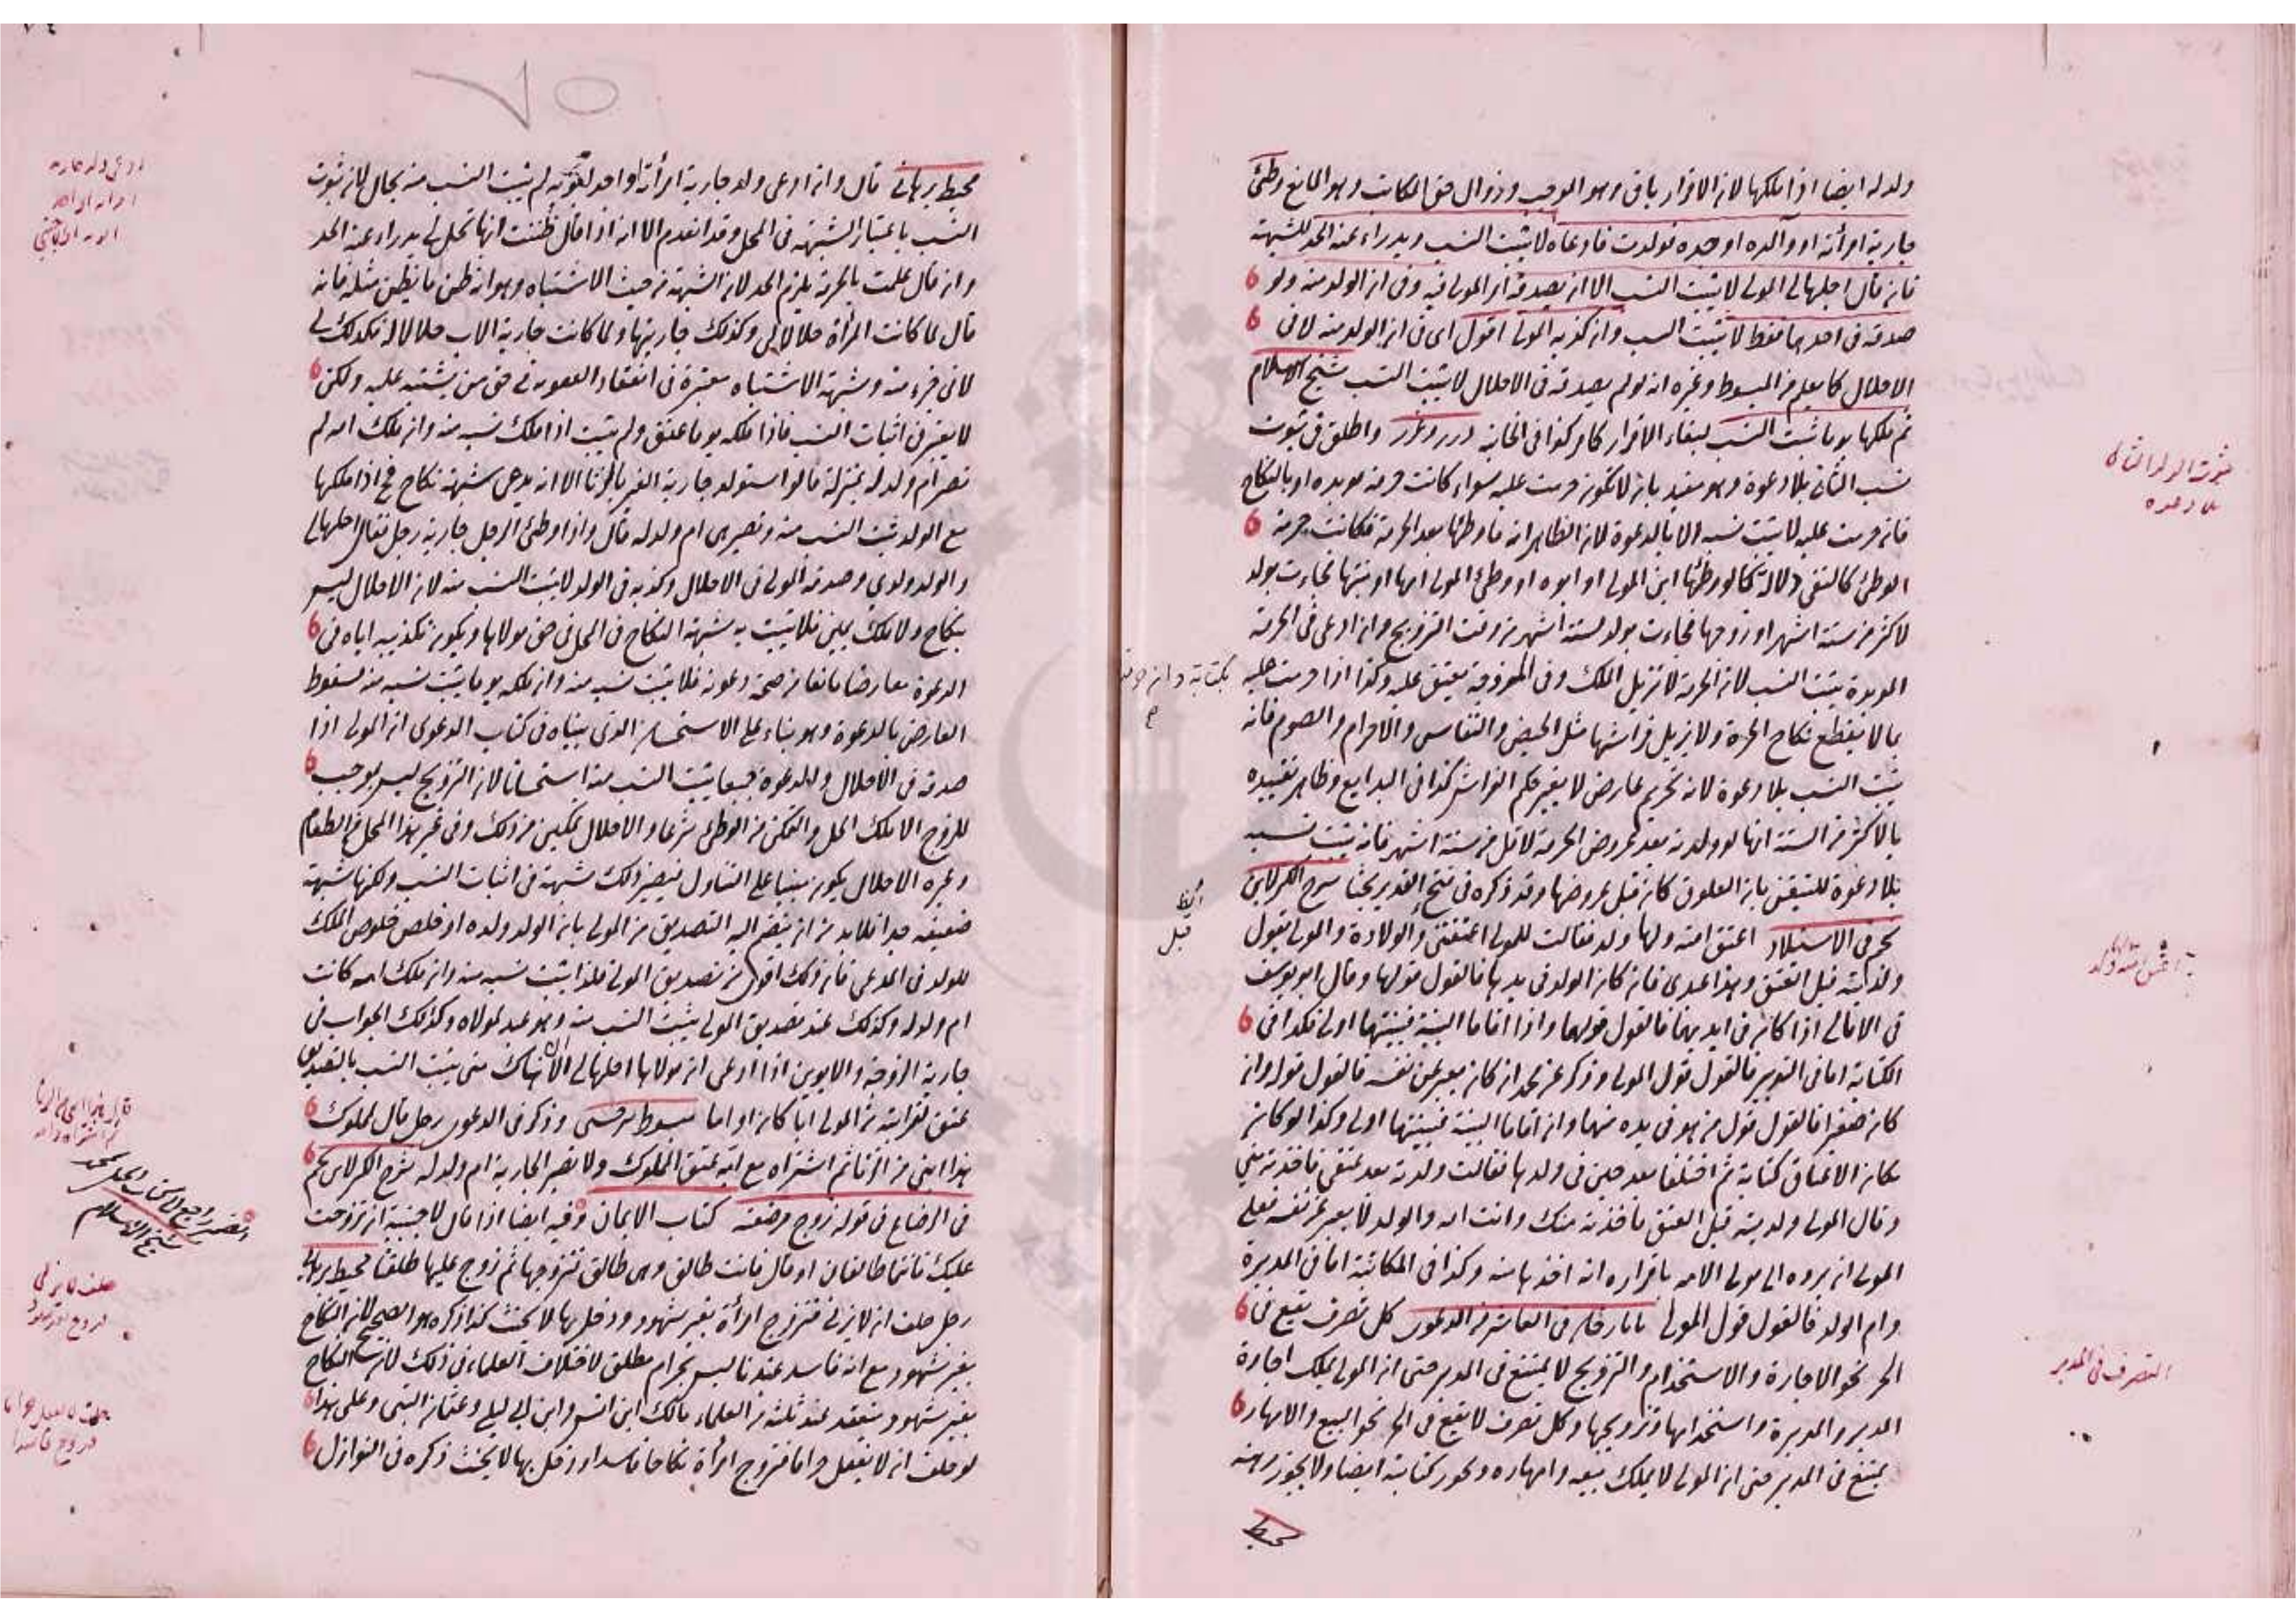 ولد له ايضا اذا ملكها لان الاقرار باق وهو الموجب وزوال حق المكاتب وهو المانع وطئ
جارية امرأته او والده او جده فولدت فادعاه لا يثبت النسب ويدراء عنه الحد للشبهة
فان قال احلها لي المولى لا يثبت النسب الا ان يصدقه المولى فيه وفي ان الولد منه ولو
صدقه في احدهما فقط لا يثبت النسب وان كذبه المولى اقول اى في ان الولد منه لا في
الاحلال كما يعلم من المبسوط وغيره انه لو لم يصدقه في الاحلال لا يثبت النسب شيخ الاسلام
ثم ملكها يوما ثبت النسب لبقاء الاقرار كما مر كذا في الخانية درر وغرر واطلق في ثبوت
نسب الثاني بلا دعوة وهو مقيد بان لا تكون حرمت عليه سواء كانت حرمة مؤبدة او بالنكاح
فان حرمت عليه لا يثبت نسبه الا بالدعوة لان الظاهر انه ما وطئها بعد الحرمة فكانت حرمة
الوطئ كالنفي دلالة كما لو وطئها ابن المولى او ابوه او وطئ المولى امها او بنتها فجاءت بولد
لاكثر من ستة اشهر او زوجها فجاءت بولد لستة اشهر من وقت التزويج وان ادعى في الحرمة
المؤبدة يثبت النسب لان الحرمة لا تزيل الملك وفي المزوجة يعتق عليه وكذا اذا حرمت عليه
بكتابة وان حرمت
بما لا يقطع نكاح الحرة ولا يزيل فراشها مثل الحيض والنفاس والاحرام والصوم فانه
يثبت النسب بلا دعوة لانه تحريم عارض لا يغير حكم الفراش كذا في البدايع وظاهر تقييده
بالاكثر من الستة انها لو ولدته بعد عروض الحرمة لاقل من ستة اشهر فانه يثبت نسبه
بلا دعوة للتيقن بان العلوق كان قبل عروضها وقد ذكره في فتح القدير بحثا شرح الكنز لابن
نجم في الاستيلاد اعتق امته ولها ولد فقالت للمولى اعتقتني قبل الولادة والمولى يقول
ولدتيه قبل العتق وهذا عبدى فان كان الولد في يدها فالقول قولها وقال ابو يوسف
في الامالي اذا كان في ايديهما فالقول قولها واذا اقاما البينة فبينتها اولى فكذا في
الكتابة اما في التدبير فالقول قول المولى وذكر عن محمد ان كان يعبر عن نفسه فالقول قوله وان
كان صغيرا فالقول قول من هو في يده منهما وان اقاما البينة فبينتها اولى وكذا لو كان
مكان الاعتاق كتابة ثم اختلفا بعد حين في ولدها فقالت ولدته بعد عتقي فاخذته مني
وقال المولى ولدتيه قبل العتق فاخذته منك وانت امه والولد لا يعبر عن نفسه فعلى
المولى ان يرده الى مولى الامه باقراره انه اخذها منه وكذا في المكاتبة اما في المدبرة
وام الولد فالقول قول المولى تاتارخان في العاشر من الدعوى كل تصرف يقع في
الحر نحو الاجارة والاستخدام والتزويج لا يمتنع في المدبر حتى ان المولى يملك اجارة
المدبر والمدبرة واستخدامها وتزويجها وكل تصرف لا يقع في الحر نحو البيع والامهار
يمتنع في المدبر حتى ان المولى لا يملك بيعه وامهاره ويجوز كتابته ايضا ولا يجوز رهنه
محيط
ثبوت الولد الثاني
بلا دعوة
اعتق امته ولد
التصرف في المدبر
محيط برهاني قال وان ادعى ولد جارية امرأته او احد ابويه لم يثبت النسب منه بحال لان ثبوت
النسب باعتبار الشبهة في المحل وقد انعدم الا انه اذا قال ظننت انها تحل لي يدراء عنه الحد
وان قال علمت بالحرمة يلزم الحد لان الشبهة من حيث الاشتباه وهو انه ظن ما يظن مثله فانه
قال لما كانت المرأة حلالا لي وكذلك جاريتها ولما كانت جارية الاب حلالا له فكذلك لي
لاني جزء منه وشبهة الاشتباه معتبرة في اسقاط العقوبة في حق من يشتبه عليه ولكن
لا يعتبر في اثبات النسب فاذا ملكه يوما عتق ولم يثبت اذا ملك نسبه منه وان ملك امه لم
تصر ام ولد له بمنزلة ما لو استولد جارية الغير بالزنا الا انه يدعى شبهة نكاح فح اذا ملكها
مع الولد ثبت النسب منه وتصير هى ام ولد له قال واذا وطئ الرجل جارية رجل فقال احلها لي
والولد ولدي وصدقه المولى في الاحلال وكذبه في الولد لا يثبت النسب منه لان الاحلال ليس
بنكاح ولا ملك يمين فلا يثبت به شبهة النكاح في المحل في حق مولاها ويكون تكذيبه اياه في
الدعوة معارضا مانعا من صحة دعوته فلا يثبت نسبه منه وان ملكه يوما يثبت نسبه منه لسقوط
المعارض بالدعوة وهو بناء على الاستحسان الذى بيناه في كتاب الدعوى ان المولى اذا
صدقه في الاحلال والدعوة جميعا يثبت النسب منه استحسانا لان التزويج ليس بموجب
للزوج الا ملك الحل والتمكن من الوطئ شرعا والاحلال تمكين من ذلك وفي غير هذا المحل من الطعام
وغيره الاحلال يكون مبنيا على التناول فيصير ذلك شبهة في اثبات النسب ولكنها شبهة
ضعيفة جدا فلا بد من ان ينضم اليه التصديق من المولى بان الولد ولده او خلص خلوص الملك
للولد في المدعى فان ذلك اقوى من تصديق المولى فلذا يثبت نسبه منه وان ملك امه كانت
ام ولد له وكذلك عند تصديق المولى يثبت النسب منه وهو عبد لمولاه وكذلك الجواب في
جارية الزوجة والابوين اذا ادعى ان مولاها احلها لي الا ان هناك متى يثبت النسب بالتصديق
عتق لقرابته من المولى ابا كان او اما مبسوط سرخسى وذكر في الدعوى رجل قال لمملوك
هذا ابنى من الزنا ثم اشتراه مع امه عتق المملوك ولا تصير الجارية ام ولد له شرح الكنز لابن نجم
في الرضاع في قوله زوج مرضعته كتاب الايمان وفيه ايضا اذا قال لاجنبية ان تزوجت
عليك فانتما طالقان او قال فانت طالق وهى طالق فتزوجها ثم زوج عليها طلقتا محيط برهاني
رجل حلف ان لا يزنى فتزوج امرأة بغير شهود ودخل بها لا يحنث كذا ذكره هو الصحيح لان النكاح
بغير شهود مع انه فاسد عندنا ليس بحرام مطلق لاختلاف العلماء في ذلك لان النكاح
بغير شهود ينعقد عند ثلثة من العلماء مالك ابن انس وابن ابي ليلى وعثمان البتى وعلى هذا
لو حلف ان لا يفعل حراما فتزوج امرأة نكاحا فاسدا ودخل بها لا يحنث ذكره في النوازل
ادعى ولد جارية
امرأته او احد
شيخ الاسلام
حلف لا يزنى
حلف لا يفعل حراما
فتزوج فاسدا